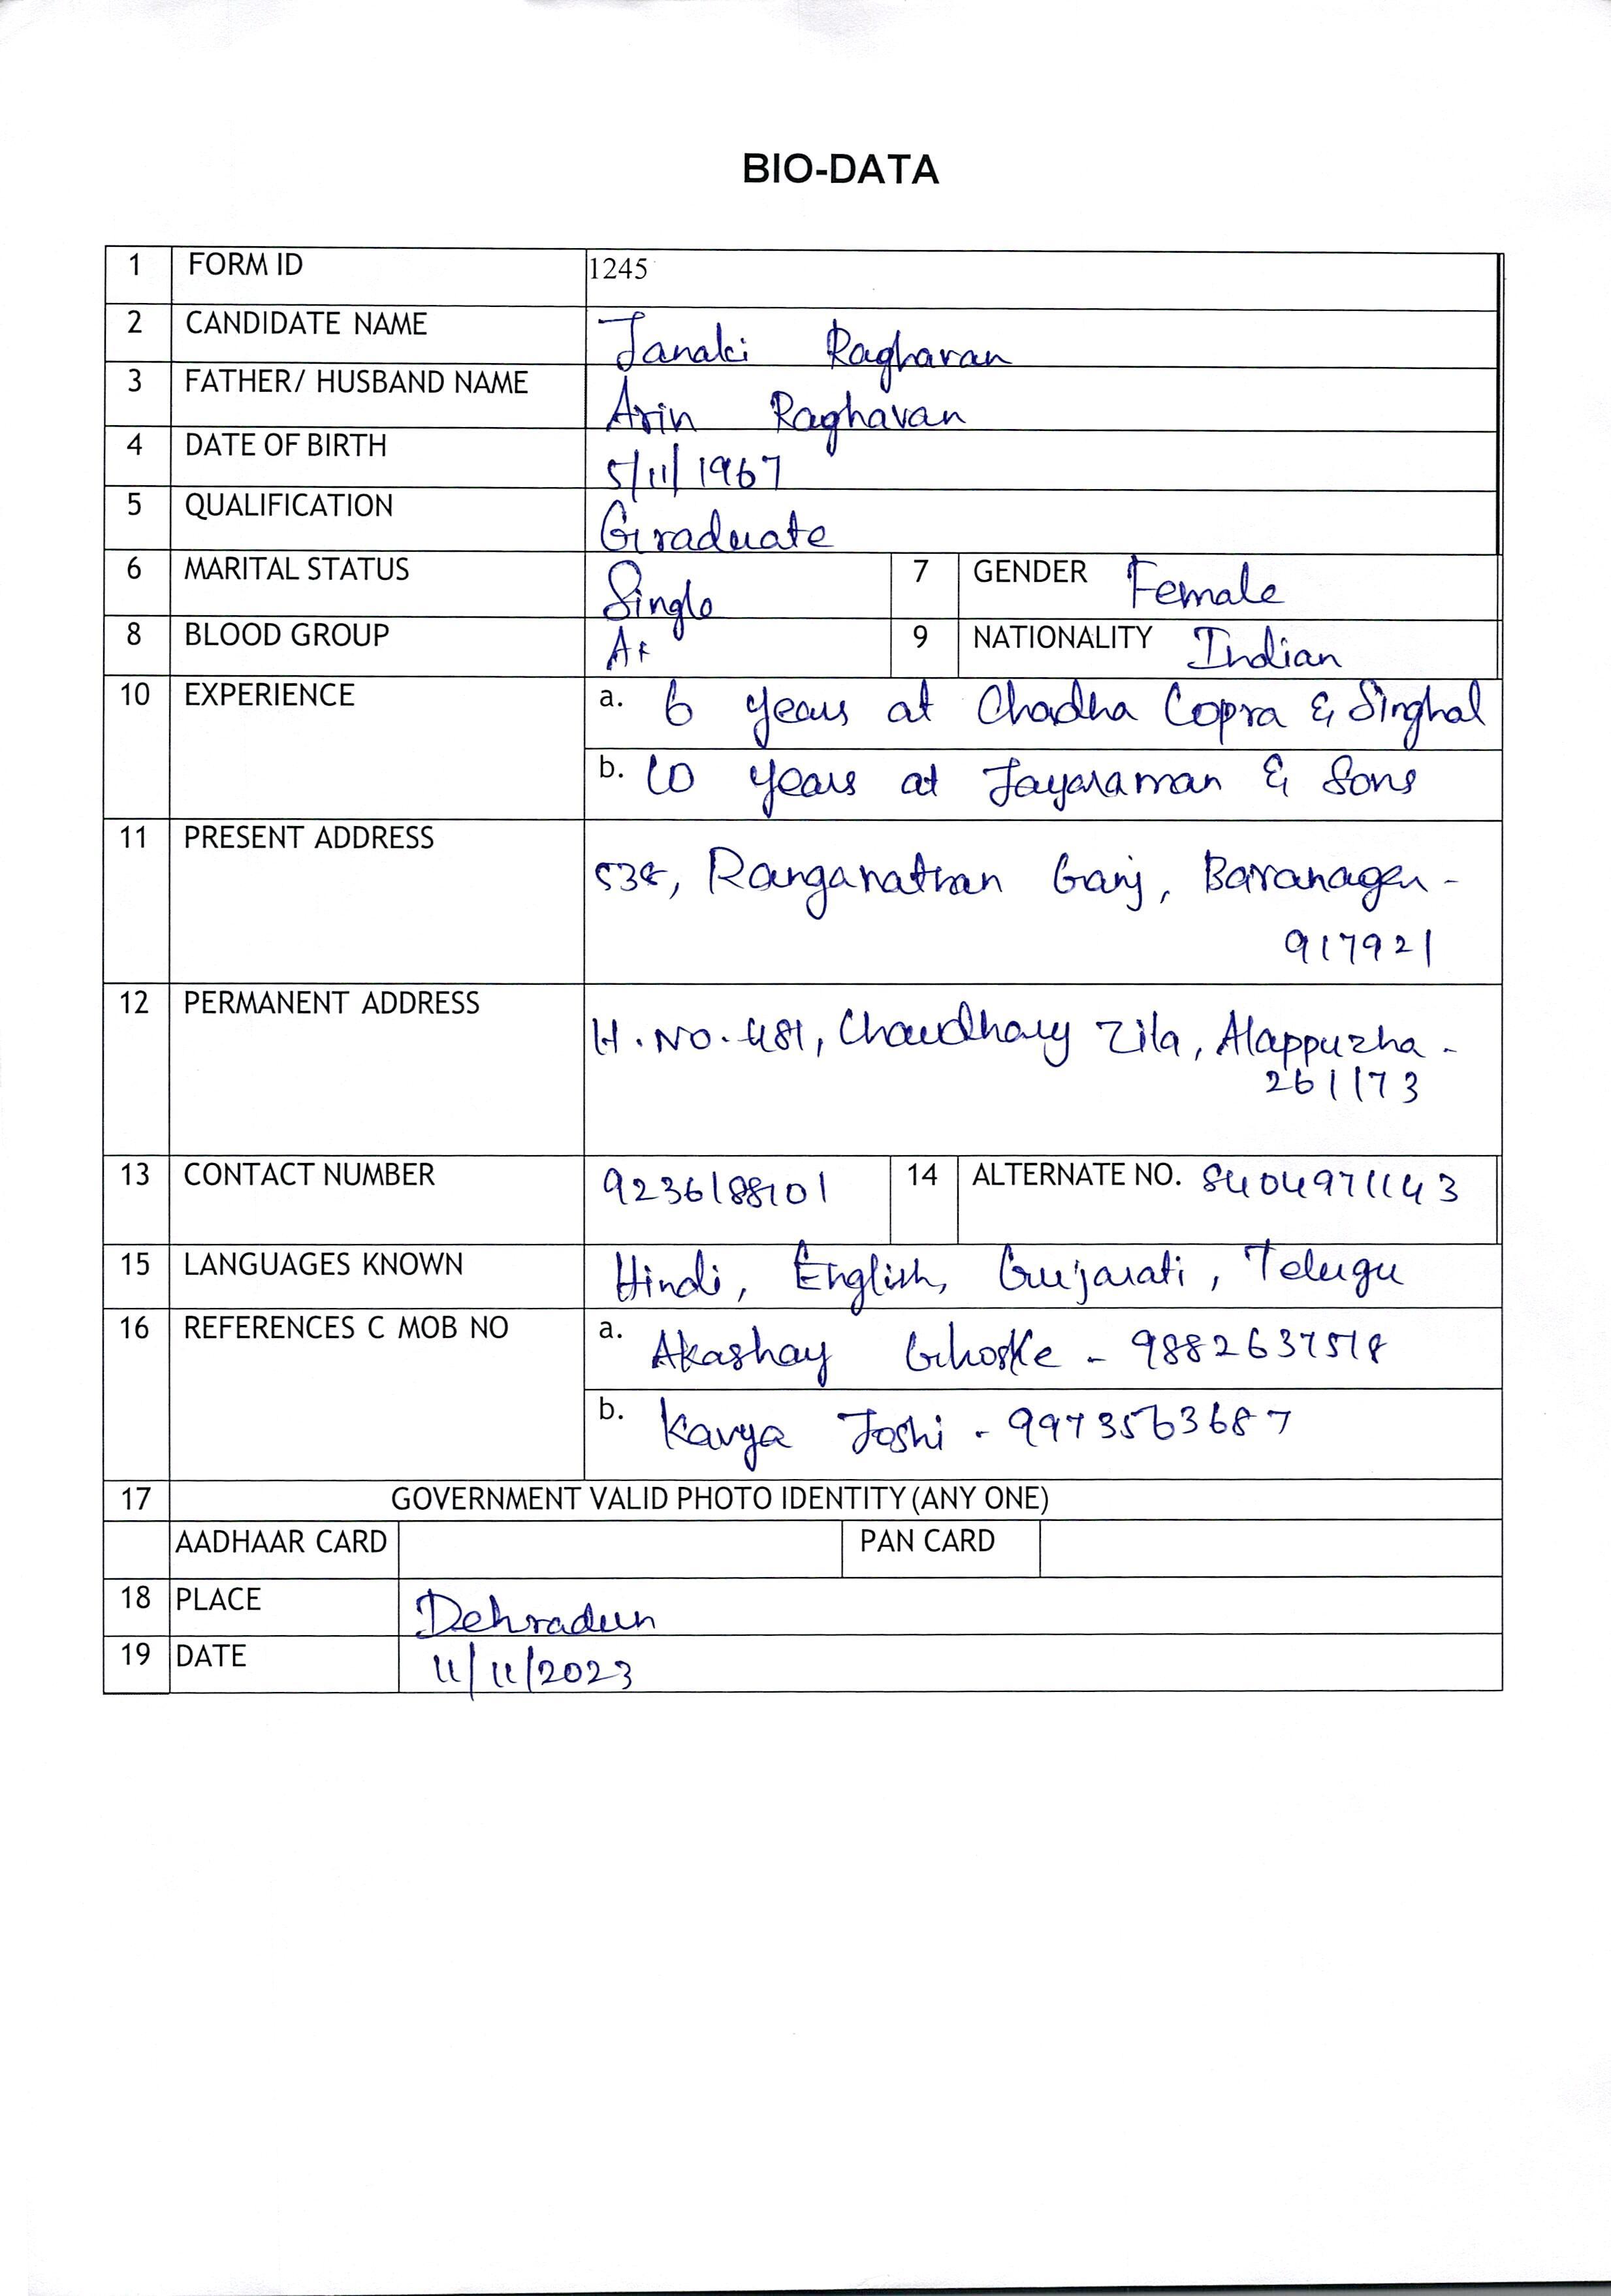 BIO-DATA
1 FORM ID 1245
2 CANDIDATE NAME Janaki Raghavan
3 FATHER/ HUSBAND NAME Arin Raghavan
4 DATE OF BIRTH 5/11/1967
5 QUALIFICATION Graduate
6 MARITAL STATUS Single 7 GENDER Female
8 BLOOD GROUP A+ 9 NATIONALITY Indian
10 EXPERIENCE a. 6 years at Chadha Copra & Singhal
b. 10 years at Jayaraman & Sons
11 PRESENT ADDRESS
Ranganathan Ganj, Baranagar -
917921
12 PERMANENT ADDRESS
H.NO. 481, Chaudhary Zila, Alappuzha -
261173
13 CONTACT NUMBER 14 ALTERNATE NO. 8404971143
15 LANGUAGES KNOWN Hindi, English, Gujarati, Telugu
16 REFERENCES C MOB NO a. Akashay - 9882637518
b. Kavya Joshi - 9973563687
17 GOVERNMENT VALID PHOTO IDENTITY (ANY ONE)
AADHAAR CARD PAN CARD
18 PLACE Dehradun
19 DATE 11/11/2023